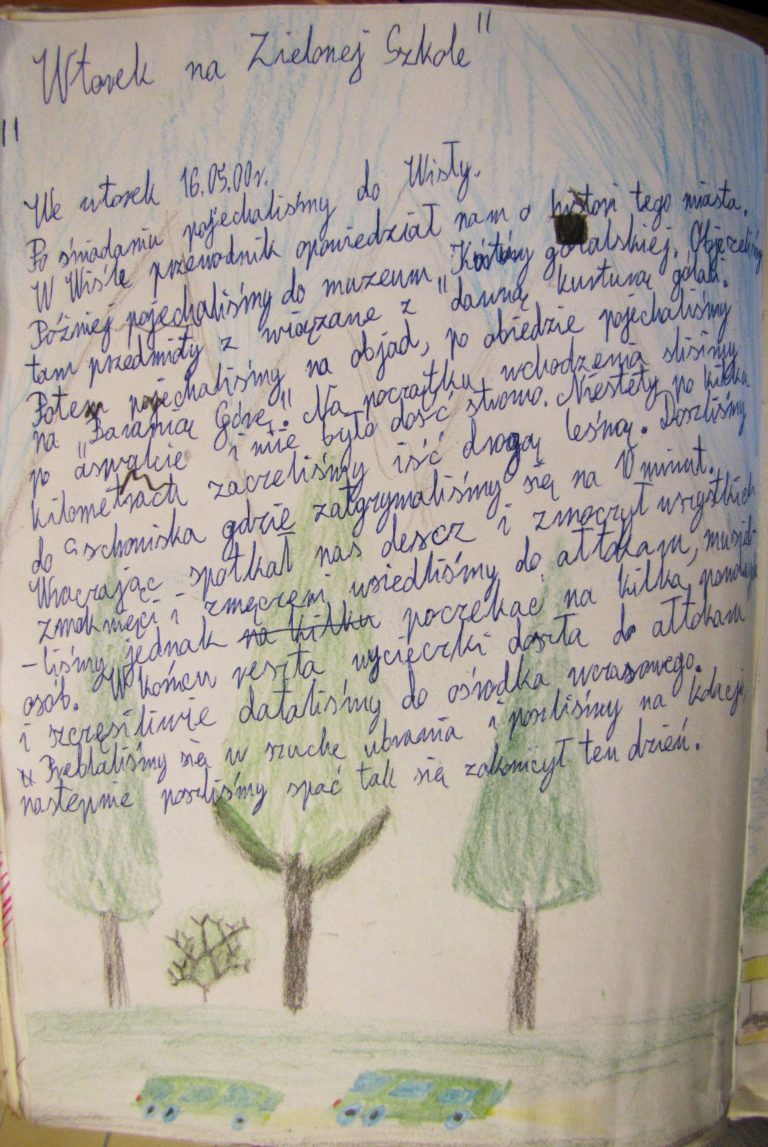 "Wtorek na Zielonej Szkole"
We wtorek 16.05.00r.
Po śniadaniu pojechaliśmy do Wisły.
W Wiśle przewodnik opowiedział nam o histori tego miasta.
Później pojechaliśmy do muzeum "Kultury góralskiej. Objerzeliśmy
tam przedmioty z wiązane z "dawną kurturą górali.
Potem pojechaliśmy na objad, po obiedzie pojechaliśmy
na "Baranią Górę". Na początku wchodzenia śliśmy
po aswalcie i nie było dość stromo. Niestety po kilka
kilometrach zaczeliśmy iść drogą leśną. Doszliśmy
do schoniska gdzie zatrzymaliśmy się na 10 minut.
Wracrając spotkał nas deszcz i zmoczył wszystkich
zmoknięci i zmęczeni wsiedliśmy do ałtokaru, musie-
-liśmy jednak na kilku poczekać na kilka
osób. W końcu reszta wycieczki doszła do ałtokaru
i szczęsiliwie datarliśmy do ośrodka wczasowego.
Przebraliśmy się w szuche ubrania i poszliśmy na kolacje,
następnie poszliśmy spać tak się zakończył ten dzień.